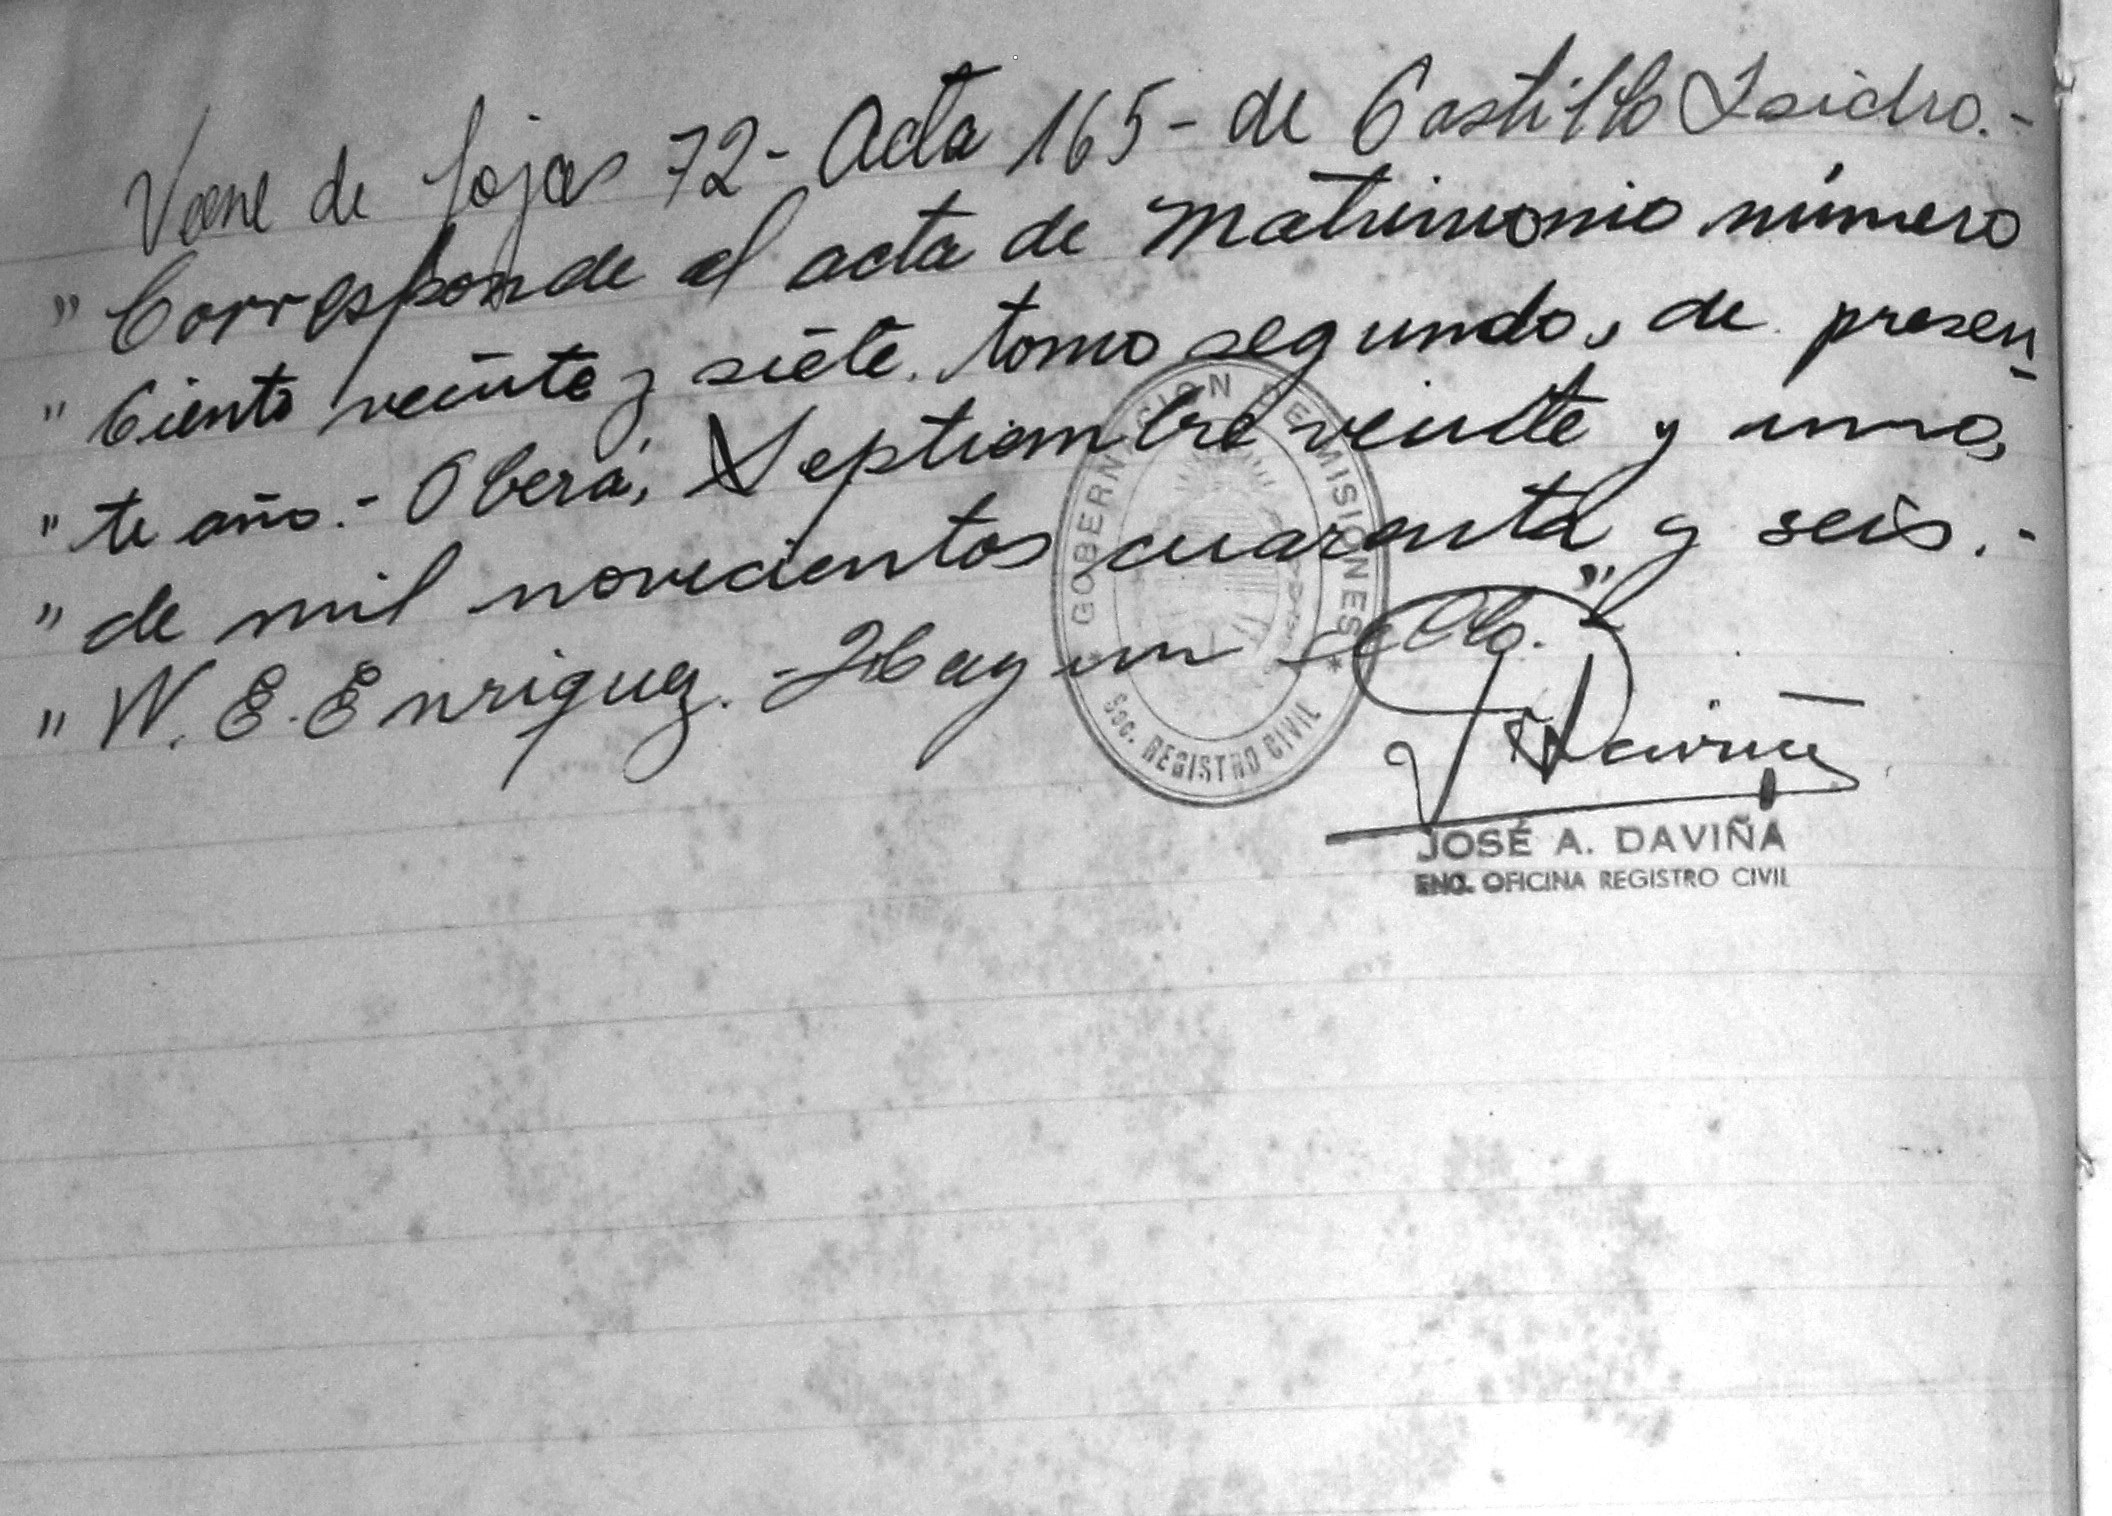 Viene de fojas 72- Acta 165- de Castillo Isidro.-
" Corresponde al acta de Matrimonio número
" Ciento veinte y siete. tomo segundo, de presen-
" te año.- Oberá, Septiembre veinte y uno,
" de mil novecientos cuarenta y seis.- "
" W. E. Enriquez. - Hay un sello.
GOBERNACION DE MISIONES
Soc. REGISTRO CIVIL
JOSÉ A. DAVIÑA
ENC. OFICINA REGISTRO CIVIL